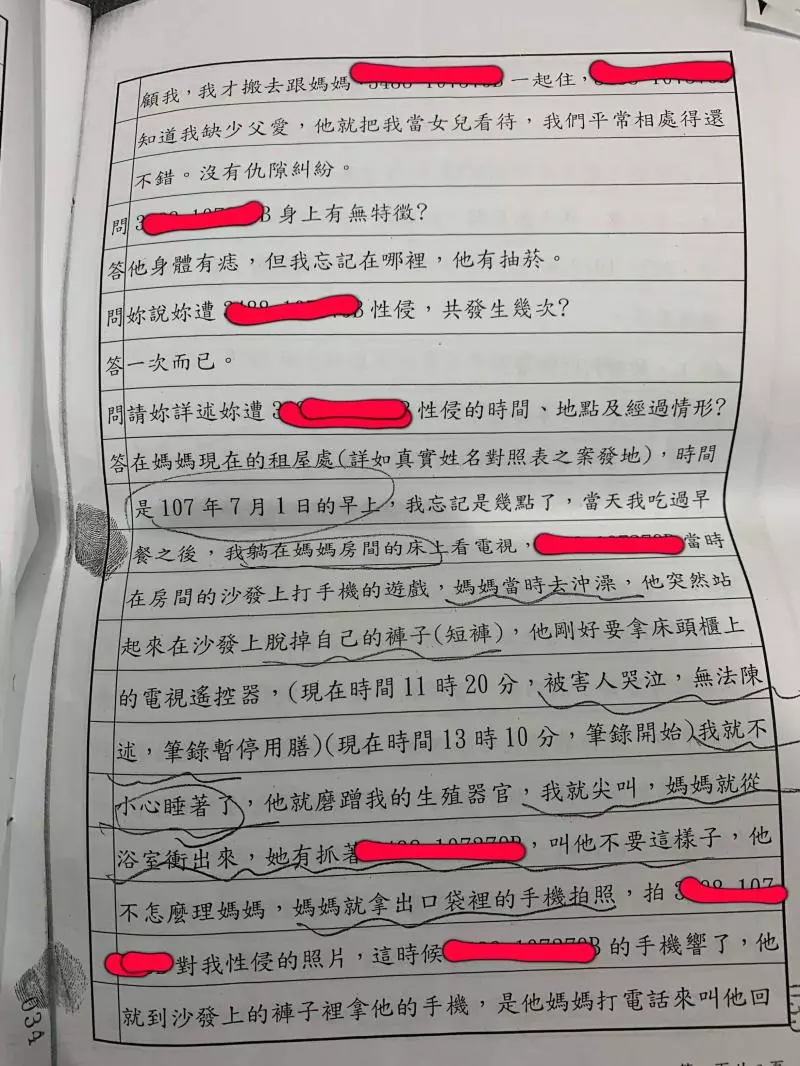 顧我，我才搬去跟媽媽 一起住，
知道我缺少父愛，他就把我當女兒看待，我們平常相處得還
不錯。沒有仇隙糾紛。
問 身上有無特徵?
答他身體有痣，但我忘記在哪裡，他有抽菸。
問妳說妳遭 性侵，共發生幾次?
答一次而已。
問請妳詳述妳遭 性侵的時間、地點及經過情形?
答在媽媽現在的租屋處(詳如真實姓名對照表之案發地)，時間
是 107 年 7 月 1 日的早上，我忘記是幾點了，當天我吃過早
餐之後，我躺在媽媽房間的床上看電視， 當時
在房間的沙發上打手機的遊戲，媽媽當時去沖澡，他突然站
起來在沙發上脫掉自己的褲子(短褲)，他剛好要拿床頭櫃上
的電視遙控器，(現在時間 11 時 20 分，被害人哭泣，無法陳
述，筆錄暫停用膳)(現在時間 13 時 10 分，筆錄開始)我就不
小心睡著了，他就磨蹭我的生殖器官，我就尖叫，媽媽就從
浴室衝出來，她有抓著 ，叫他不要這樣子，他
不怎麼理媽媽，媽媽就拿出口袋裡的手機拍照，拍
對我性侵的照片，這時候 的手機響了，他
就到沙發上的褲子裡拿他的手機，是他媽媽打電話來叫他回
034